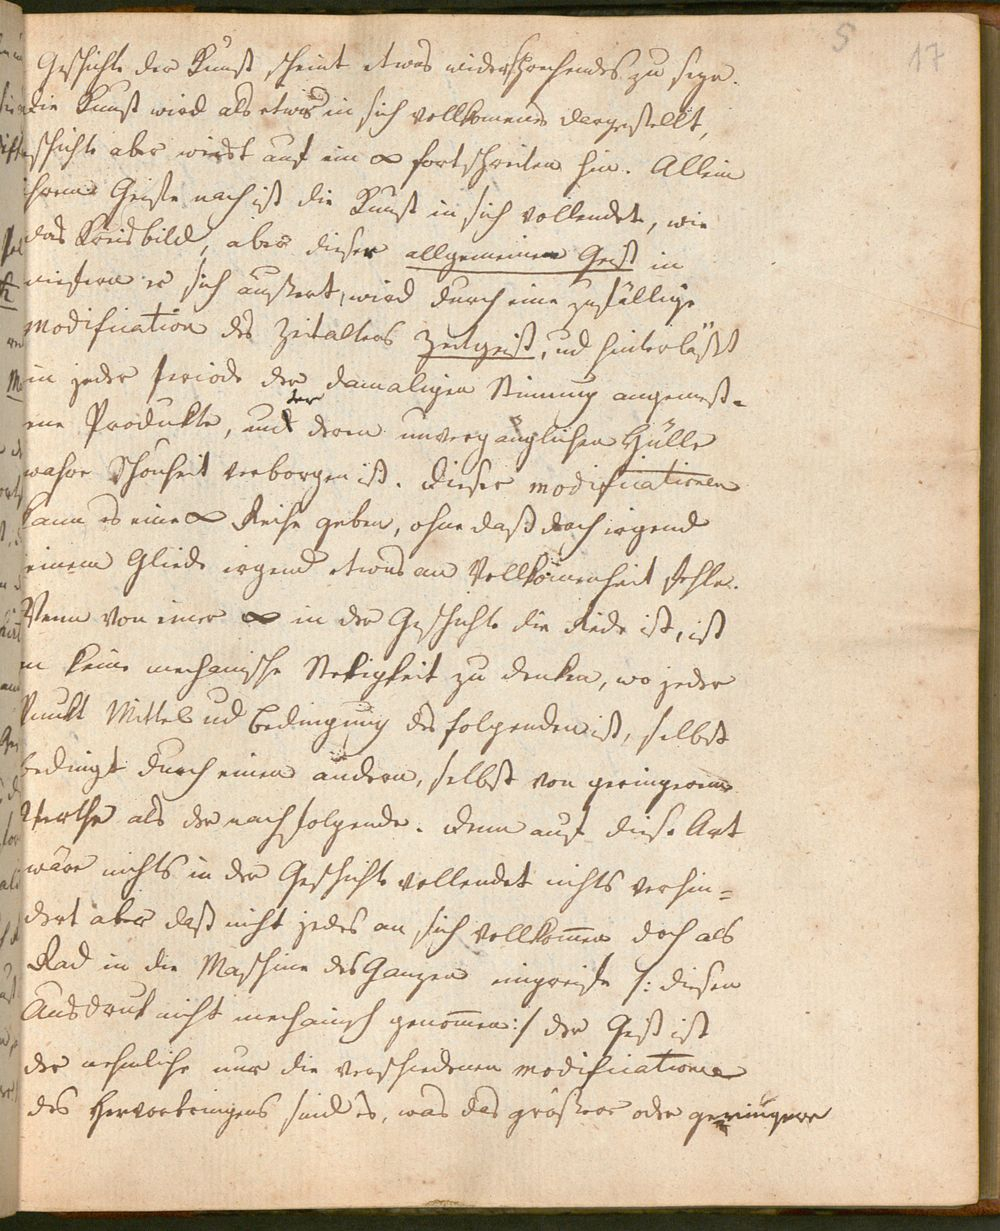 5 17
Geschichte der Kunst scheint etwas widersprechendes zu seyn.
die Kunst wird als etwas in sich vollkomenes dargestellt,
schichte aber wirkt auf ein ∞ fortschreiten hin. Allein
ihrem Geiste nach ist die Kunst in sich vollendet, wie
das Kreisbild, aber dieser allgemeinen Geist in
wiefern er sich äussert, wird durch eine zufällige
Modification des Zeitalters Zeitgeist, und hinterläßt
in jeder Periode der damaligen Stimmung angemess-
ene Produkte, unter deren unvergänglichen Hülle
wahre Schönheit verborgen ist. Dieser modificationen
kann es eine ∞ Reihe geben, ohne daß doch irgend
einem Gliede irgend etwas an Vollkommenheit fehle.
Wenn von einer ∞ in der Geschichte die Rede ist, ist
an keine mechanische Stetigkeit zu denken, wo jeder
Punkt Mittel und Bedingung des folgenden ist, selbst
bedingt durch einen andern, selbst von geringerem
Werthe als der nachfolgende. Denn auf diese Art
wäre nichts in der Geschichte vollendet nichts verhin-
dert aber daß nicht jedes an sich vollkommen doch als
Rad in die Maschine des Ganzen eingreife /: diesen
Ausdruk nicht mechanisch genommen :/ der Geist ist
der nehmliche nur die verschiedenen modificationen
des Hervorbringens sind es, was das größere oder geringere